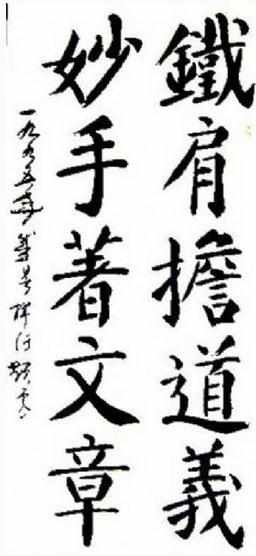 鐵肩擔道義
妙手著文章
一九九五年